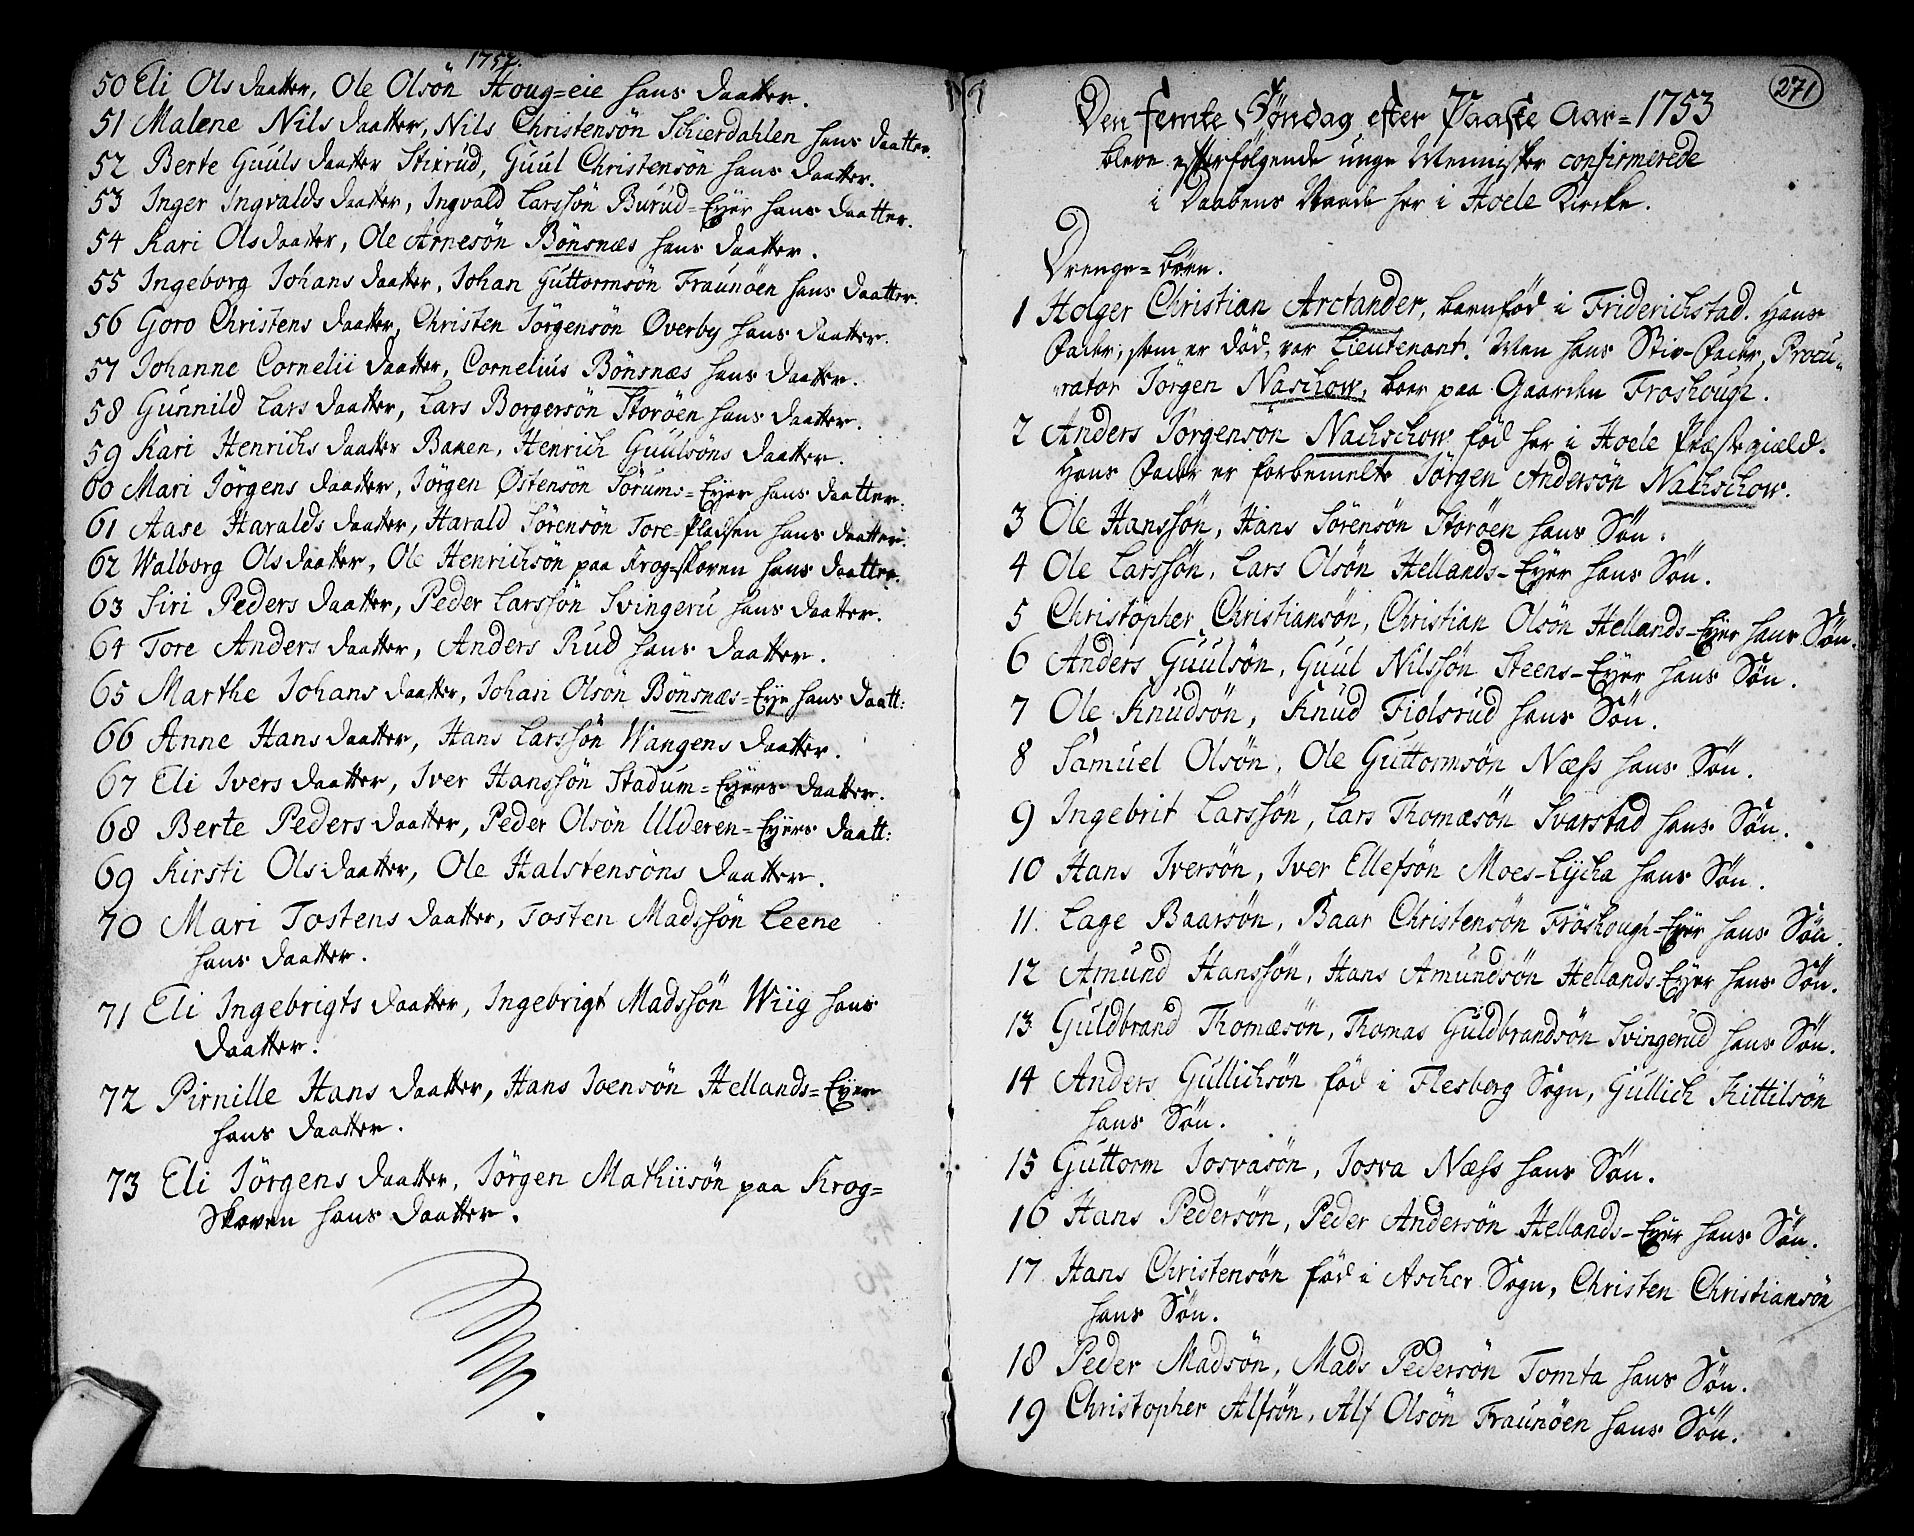 1752.
50 Eli Olsdaatter, Ole Olsön Houg=eie hans Daatter.
51 Malene Nilsdaatter, Nils Christensön Schierdahlen hans Daatter.
52 Berte Guulsdaatter Stixrud, Guul Christensön hans Daatter.
53 Inger Ingvaldsdaatter, Ingvald Larssön Burud=Eyer hans Daatter.
54 Kari Olsdaatter, Ole Arnesön Bönsnæs hans Daatter.
55 Ingeborg Johansdaatter, Johan Guttormsön Fraunöen hans Daatter.
56 Goro Christensdaatter, Christen Jörgensön Overby hans Daatter.
57 Johanne Cornelii Daatter, Cornelius Bönsnæs hans Daatter.
58 Gunnild Larsdaatter, Lars Borgersön Storöen hans Daatter.
59 Kari Henrichsdaatter Bakken, Henrich Guulsöns Daatter.
60 Mari Jörgensdaatter, Jörgen Østensön Sörums=Eyer hans Daatter.
61 Aase Haraldsdaatter, Harald Sörensön Tore=Pladsen hans Daatter.
62 Walborg Olsdaatter, Ole Henrichsön paa Krog-skoven hans Daatter.
63 Siri Pedersdaatter, Peder Larssön Svingeru hans Daatter.
64 Tore Andersdaatter, Anders Rud hans Daatter.
65 Marthe Johansdaatter, Johan Olsön Bönsnæs=Eye hans Daatt:
66 Anne Hansdaatter, Hans Larssön Wangens Daatter.
67 Eli Iversdaatter, Iver Hanssön Stadum=Eyers Daatter.
68 Berte Pedersdaatter, Peder Olsön Ulderen=Eyers Daatt:
69 Kirsti Olsdaatter, Ole Halstensöns Daatter.
70 Mari Tostensdaatter, Tosten Madssön Leene
hans Daatter.
71 Eli Ingebrigtsdaatter, Ingebrigt Madssön Wiig hans
Daatter.
72 Pirnille Hansdaatter, Hans Joensön Hellands=Eyer
hans Daatter.
73 Eli Jörgensdaatter, Jörgen Mathiisön paa Krog=
Skoven hans Daatter.
271
Den femte Söndag efter Paaske Aar=1753
bleve efterfölgende unge Mennisker confirmerede
i Daabens Naade her i Hoele Kircke.
Drenge=börn.
1 Holger Christian Arctander, barnfød i Friderichstad. Hans
Fader, som er död, var Lieutenant. Men hans Stiv-Fader, Procu-
rator Jörgen Naschow, boer paa Gaarden Froshough.
2 Anders Jörgensön Nachschow fød her i Hoele Præstegiæld.
Hans Fader er forbemelte Jörgen Andersön Nachschow.
3 Ole Hanssön, Hans Sörensön Storöen hans Sön.
4 Ole Larssön, Lars Olsön Hellands-Eyer hans Sön.
5 Christopher Christiansön, Christian Olsön Hellands-Eyer hans Sön.
6 Anders Guulsön, Guul Nilssön Steens-Eyer hans Sön.
7 Ole Knudsön, Knud Fiolsrud hans Sön.
8 Samuel Olsön, Ole Guttormsön Næss hans Sön.
9 Ingebrit Larssön, Lars Thomæsön Svarstad hans Sön.
10 Hans Iversön, Iver Ellefsön Moes-Lycka hans Sön.
11. Lage Baarsön, Baar Christensön Fröshough-Eyer hans Sön.
12 Amund Hanssön, Hans Amundsön Hellands-Eyer hans Sön.
13 Guldbrand Thomæsön, Thomas Guldbrandsön Svingerud hans Sön.
14 Anders Gullichsön fød i Flesberg Sogn, Gullich Kittilsön
hans Sön.
15 Guttorm Josvasön, Josva Næss hans Sön.
16 Hans Pedersön, Peder Andersön Hellands-Eyer hans Sön.
17. Hans Christensön fød i Ascher Sogn, Christen Christiansön
hans Sön.
18 Peder Madsön, Mads Pedersön Tomta hans Sön.
19 Christopher Alfsön, Alf Olsön Fraunöen hans Sön.